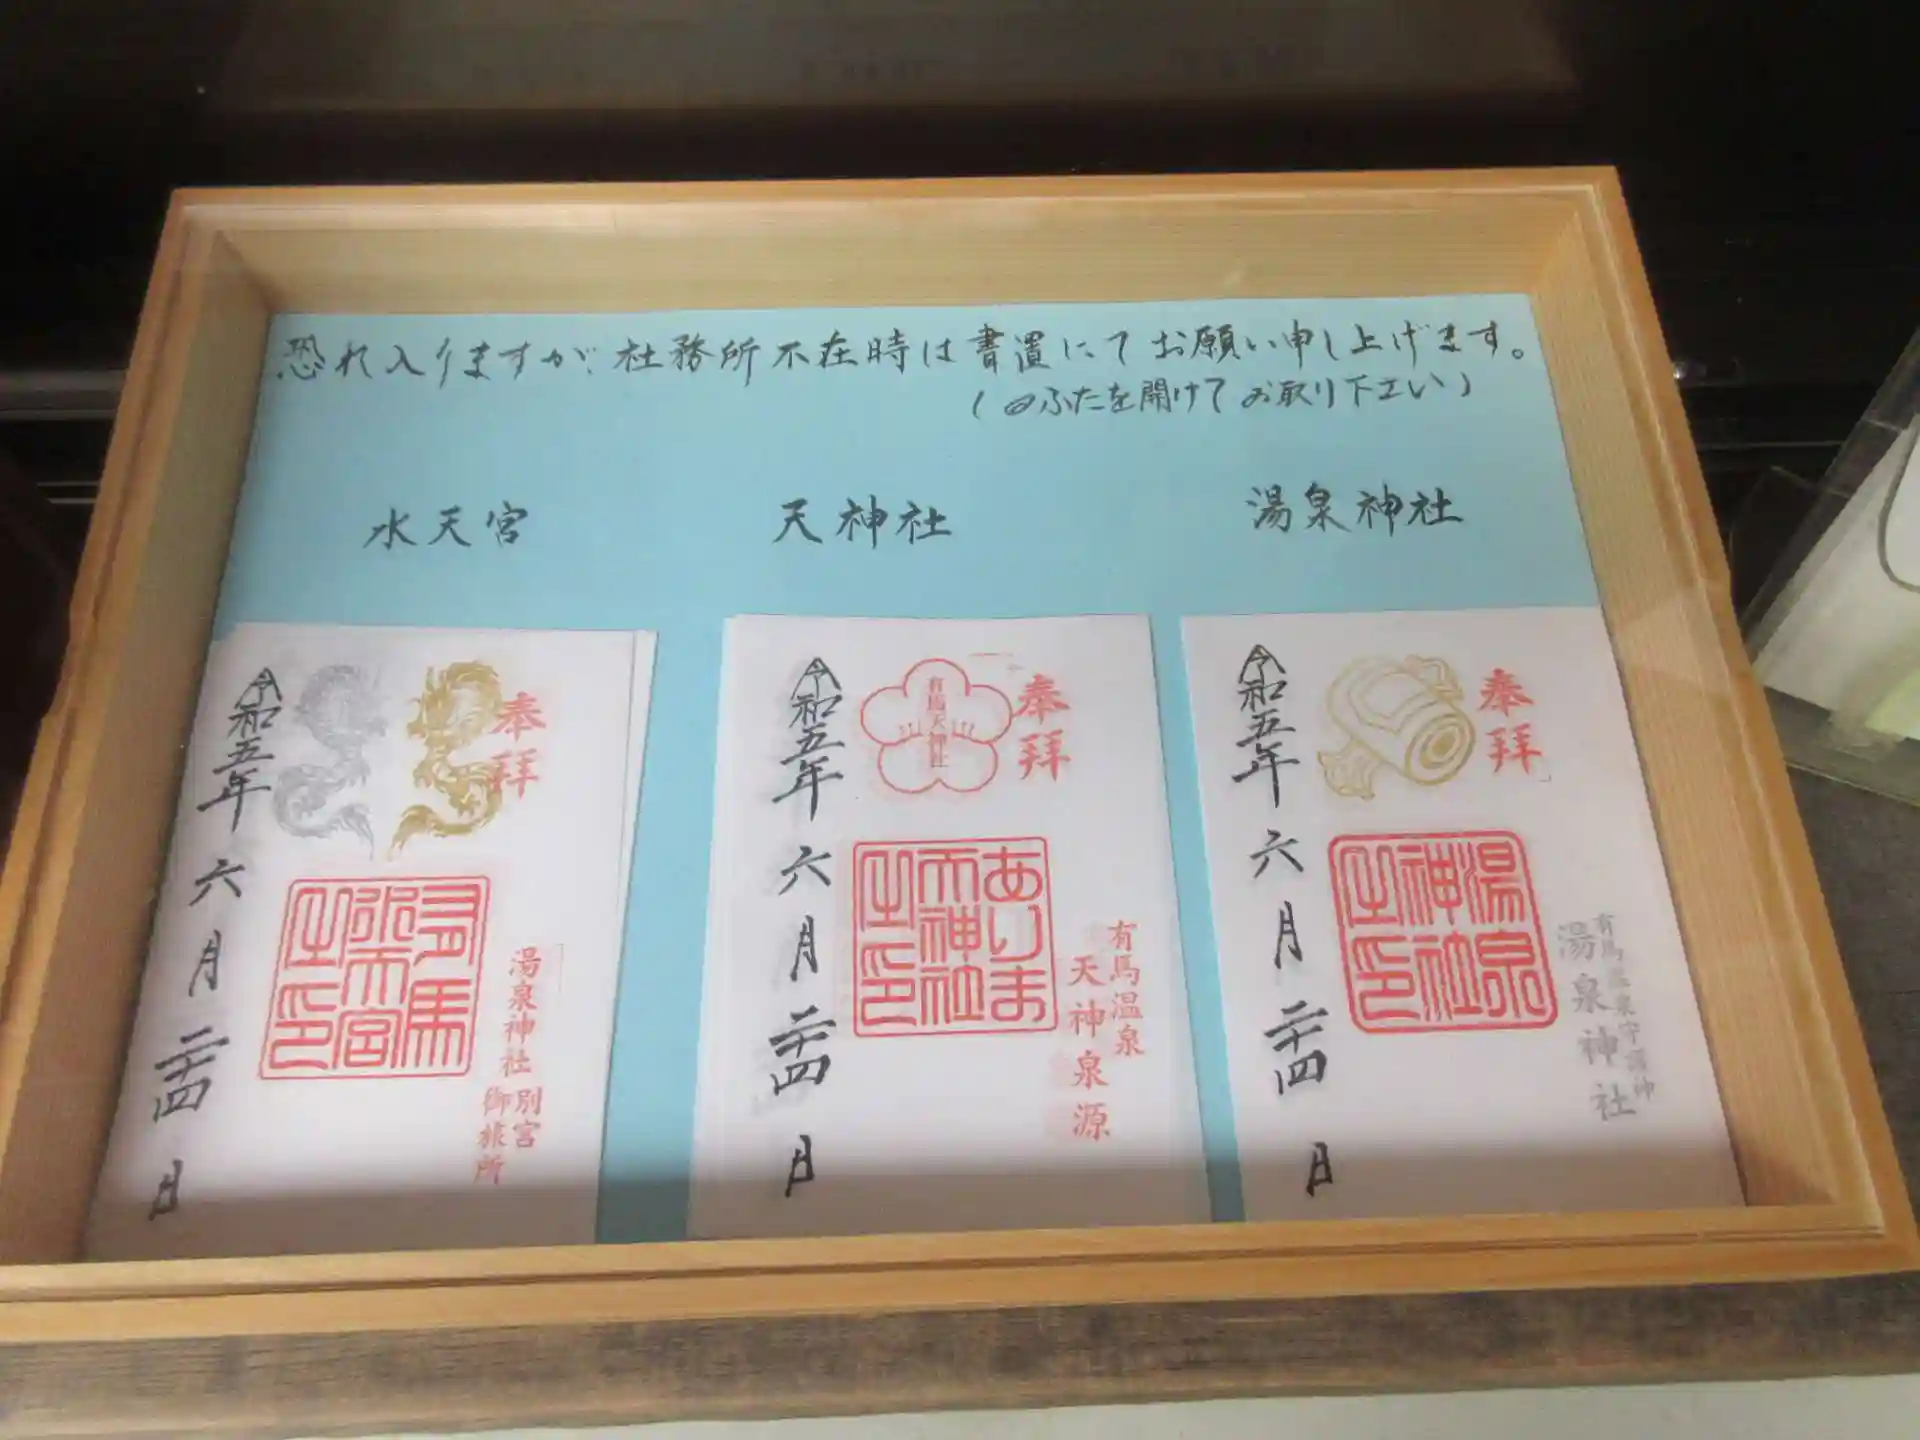 恐れ入りますが、社務所不在時は書置にてお願い申し上げます。
ふたを開けてお取り下さい)
水天宮
天神社
湯泉神社
奉拝
令和五年六月二十四日
有馬水天宮之印
湯泉神社別宮
御旅所
奉拝
有馬天神社
令和五年六月二十四日
ありま天神社之印
有馬温泉
天神泉源
奉拝
令和五年六月二十四日
湯泉神社之印
有馬温泉守護神
湯泉神社